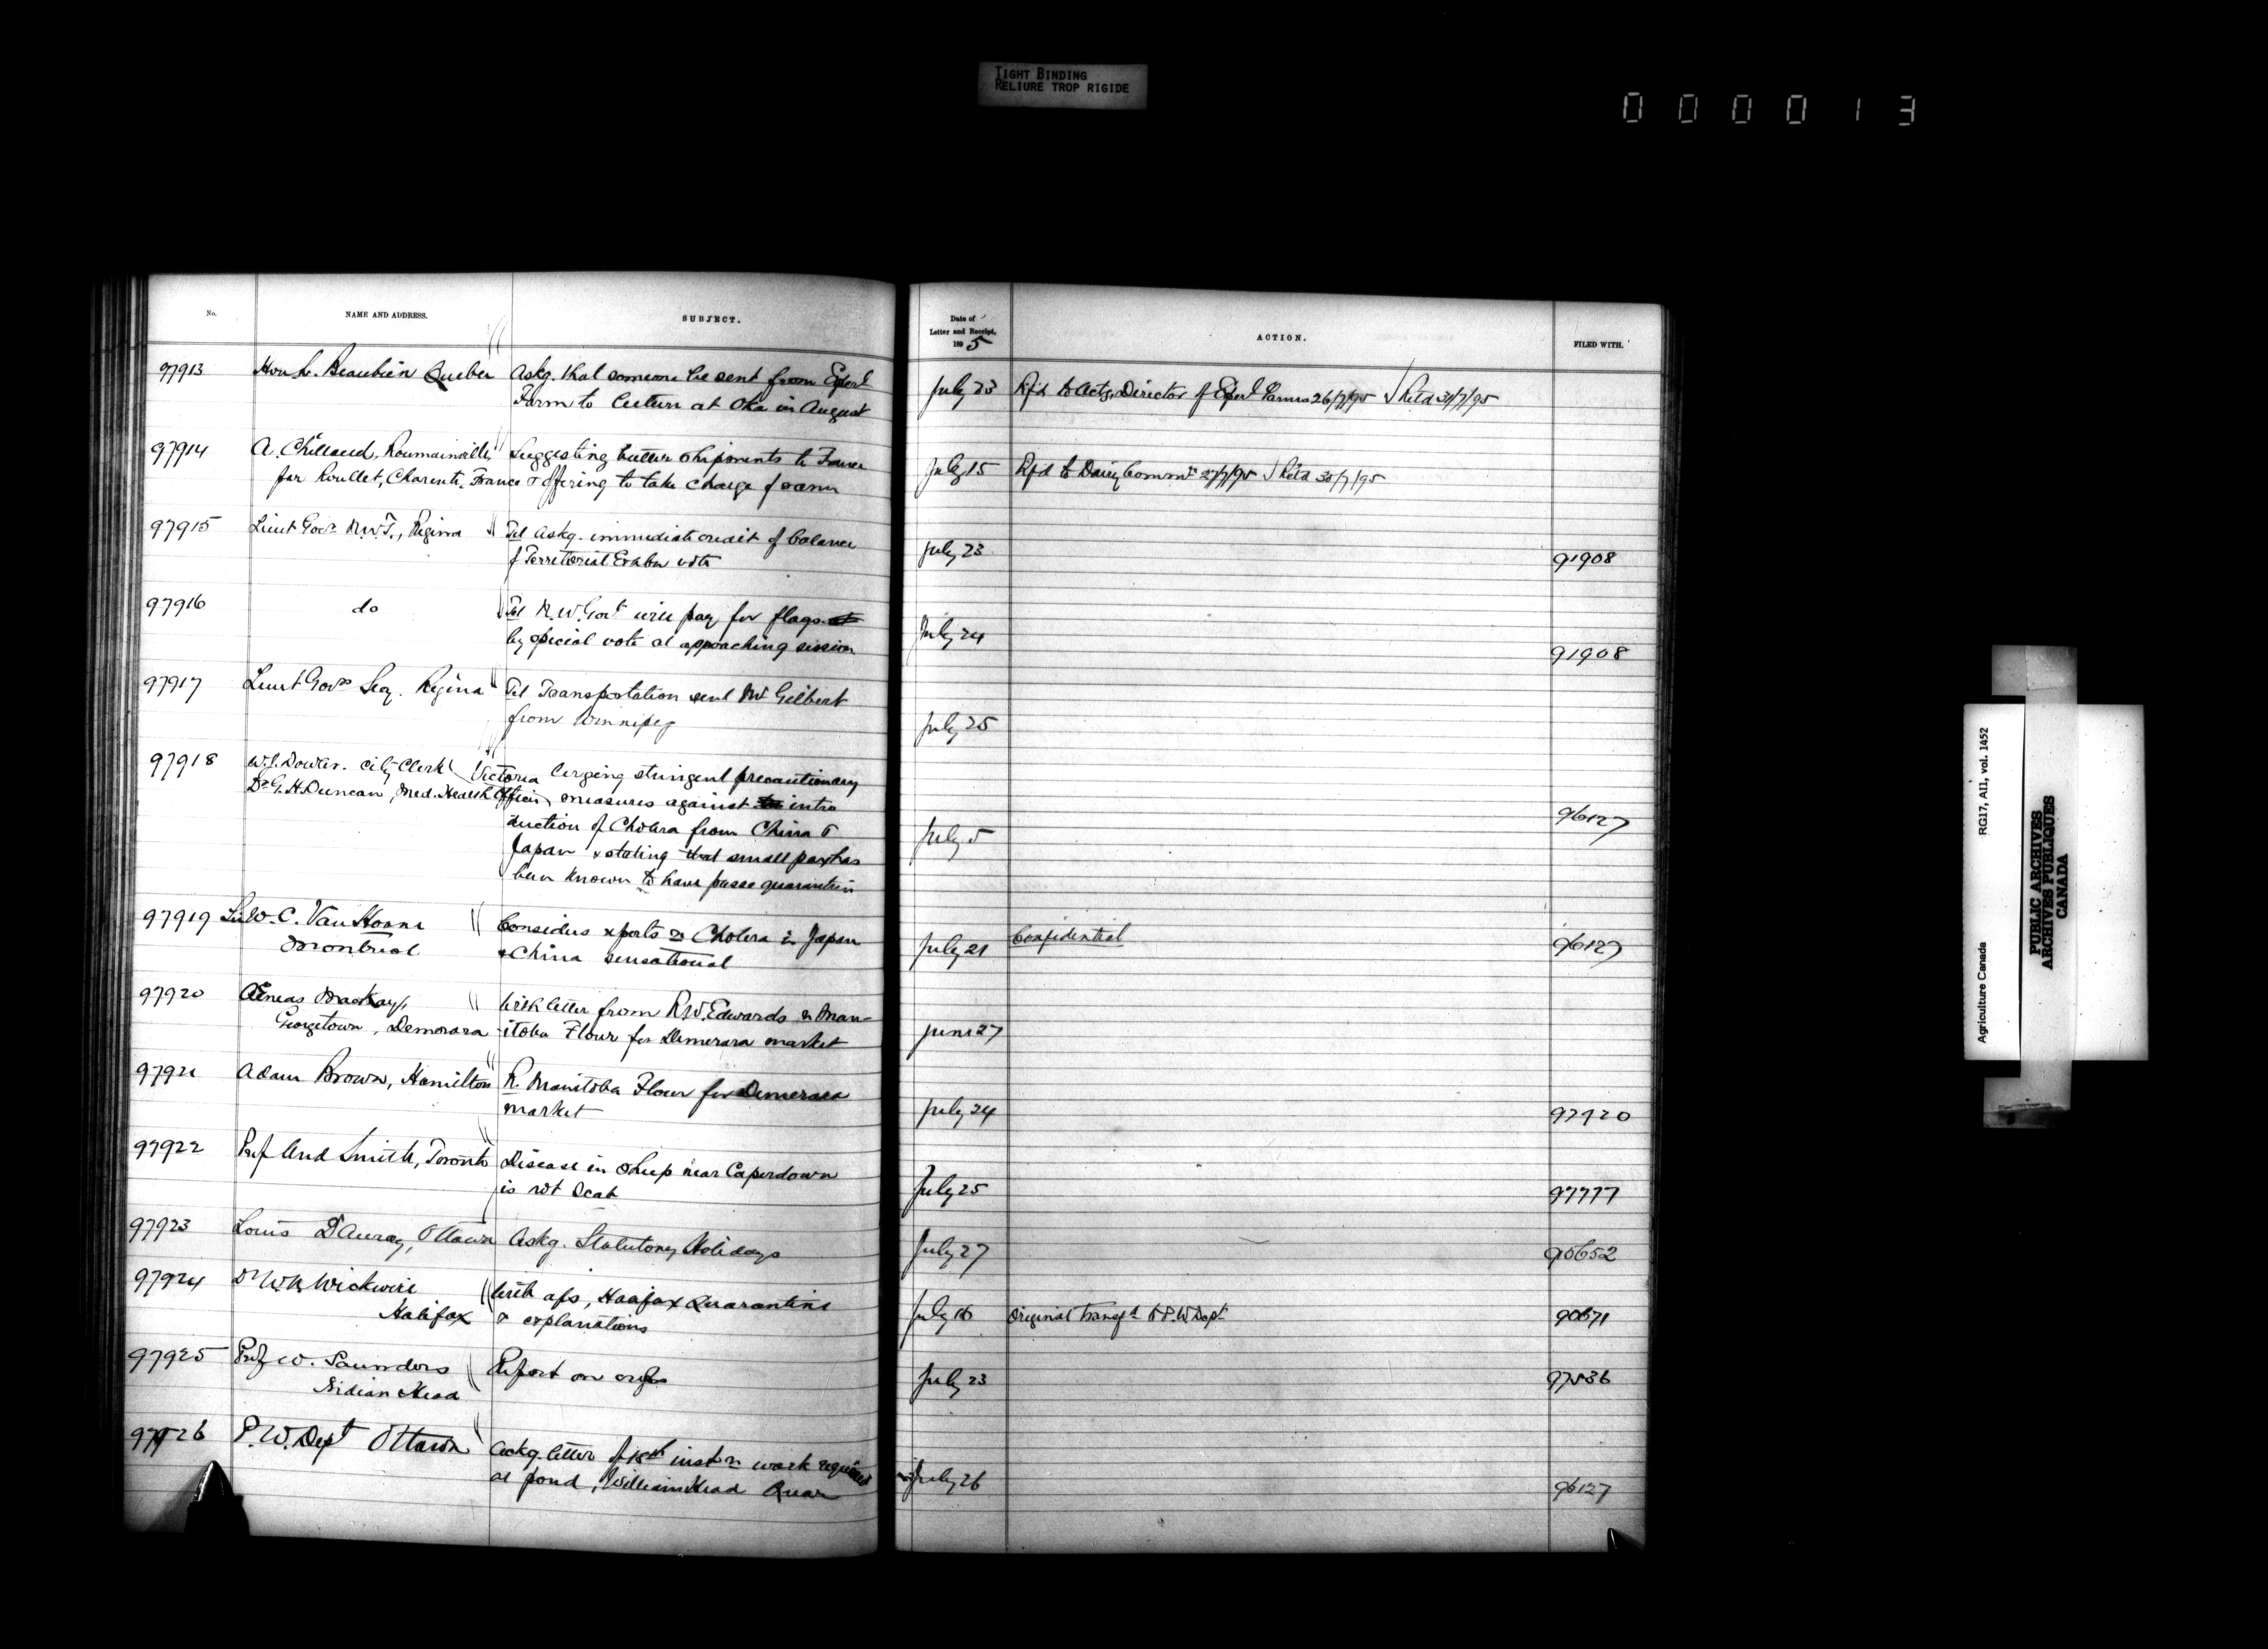 TIGHT BINDING
RELIURE TROP RIGIDE
0 0 0 0 1 3
No.
NAME AND ADDRESS.
SUBJECT.
Date of
Letter and Receipt,
189 5
ACTION.
FILED WITH.
97913 Hon L. Beaubien Quebec Askg. that someone be sent from Experl July 23 Rfd to Actg. Director of Experl Farms 26/7/95 Retd 31/7/95
Farm to lecture at Oka in August
97914 A. Chillaud, Roumainville Suggesting butter shipments to France July 15 Rfd to Dairy Commr 27/7/95 Retd 30/7/95
par Roullet, Charente, France & offering to take charge of same
97915 Lieut Govr N.W.T., Regina Tel askg. immediate credit of balance July 23 91908
of Territorial Exhbn vote
97916 do Tel N.W. Govt will pay for flags July 24 91908
by special vote at approaching session
97917 Lieut Govrs Secy. Regina Tel Transportation sent Mr Gilbert July 25
from Winnipeg
97918 W.J. Dowler. City Clerk Victoria Urging stringent precautionary July 5 96127
Dr G.H. Duncan, Med. Health Officer measures against intro
duction of Cholera from China &
Japan & stating that small pox has
been known to have passe quarantine
97919 Sir W.C. Van Horne Considers reports re Cholera in Japan July 21 Confidential 96127
Montreal & China sensational
97920 Aeneas Mackay, With letter from R.W. Edwards re Man- June 27
Georgetown, Demerara itoba Flour for Demerara market
97921 Adam Brown, Hamilton R Manitoba Flour for Demerara July 24 97920
market
97922 Prof And Smith, Toronto Disease in sheep near Caperdown July 25 97777
is not Scab
97923 Louis D'Auray, Ottawa Askg. Statutory Holidays July 27 95652
97924 Dr W.N. Wickwire With a/cs, Halifax Quarantine July 16 Original transfd to P.W. Dept 90671
Halifax & explanations
97925 Prof W. Saunders Report on crops July 23 97536
Indian Head
97926 P.W. Dept Ottawa Ackg. letter of 18th inst re work required July 26 96127
at pond, William Head Quar
Agriculture Canada RG17, AII, vol. 1452
PUBLIC ARCHIVES
ARCHIVES PUBLIQUES
CANADA